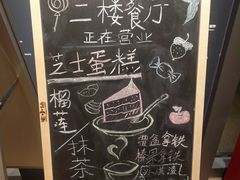 二楼餐厅
正在营业
芝士蛋糕
榴莲
抹茶
拿铁
榛果拿铁